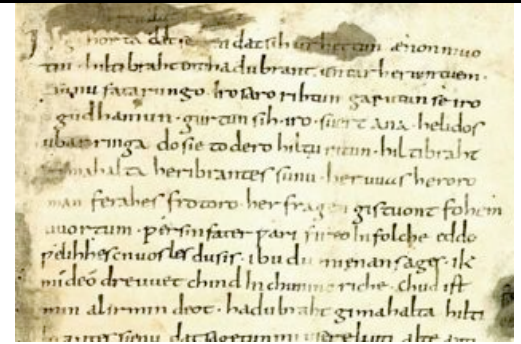 gihorta dat seggen dat sih urhettun ænon muo
tin · hiltibraht enti hadubrant · untar heriun tuem ·
sunu fatarungo · iro saro rihtun garutun se iro
gudhamun · gurtun sih · iro · suert ana · helidos
ubar ringa do sie to dero hiltu ritun · hiltibraht
gimahalta heribrantes sunu · her uuas heroro
man ferahes frotoro · her fragen gistuont fohem
uuortum · ƿer sin fater ƿari fireo In folche eddo
ƿelihhes cnuosles du sis · ibu du mi enan sages · ik
mi de odre uuet chind In chuninc riche · chud ist
min al irmin deot · hadubraht gimahalta hilti
brantes sunu dat sagetun mi usere liuti alte anti